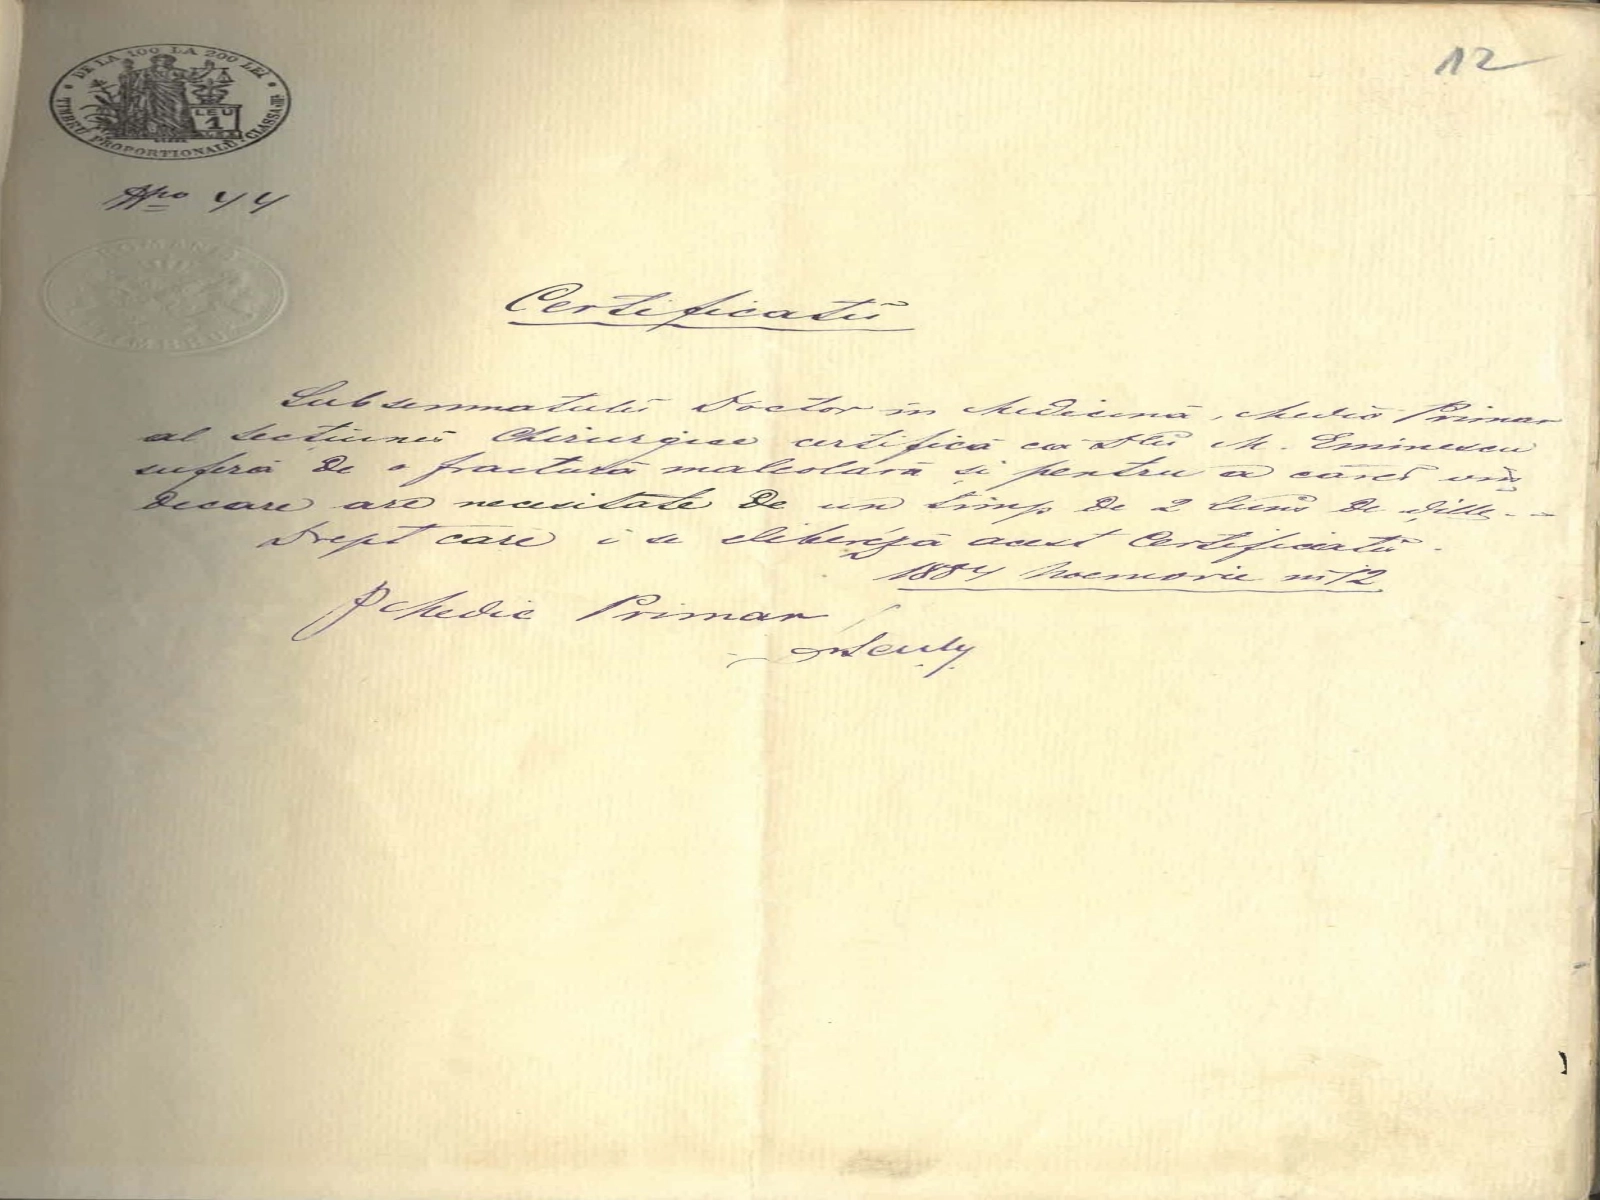 12
DE LA 100 LA 200 LEI
LEU
1
TIMBRU PROPORTIONALU CLASSA III
No 44
ROMANIA
TIMBRU
Certificatŭ
Subsemnatulŭ Doctor in Medicină, Medic Primar
al Secțiunei Chirurgice certifică că Dlŭ M. Eminescu
suferă de o fractură maleolară și pentru a cărei vin
decare are necesitate de un timp de 2 luni de Zille
Drept care i se eliberéză acest Certificatŭ.
1884 Noemvrie in 12
Medic Primar